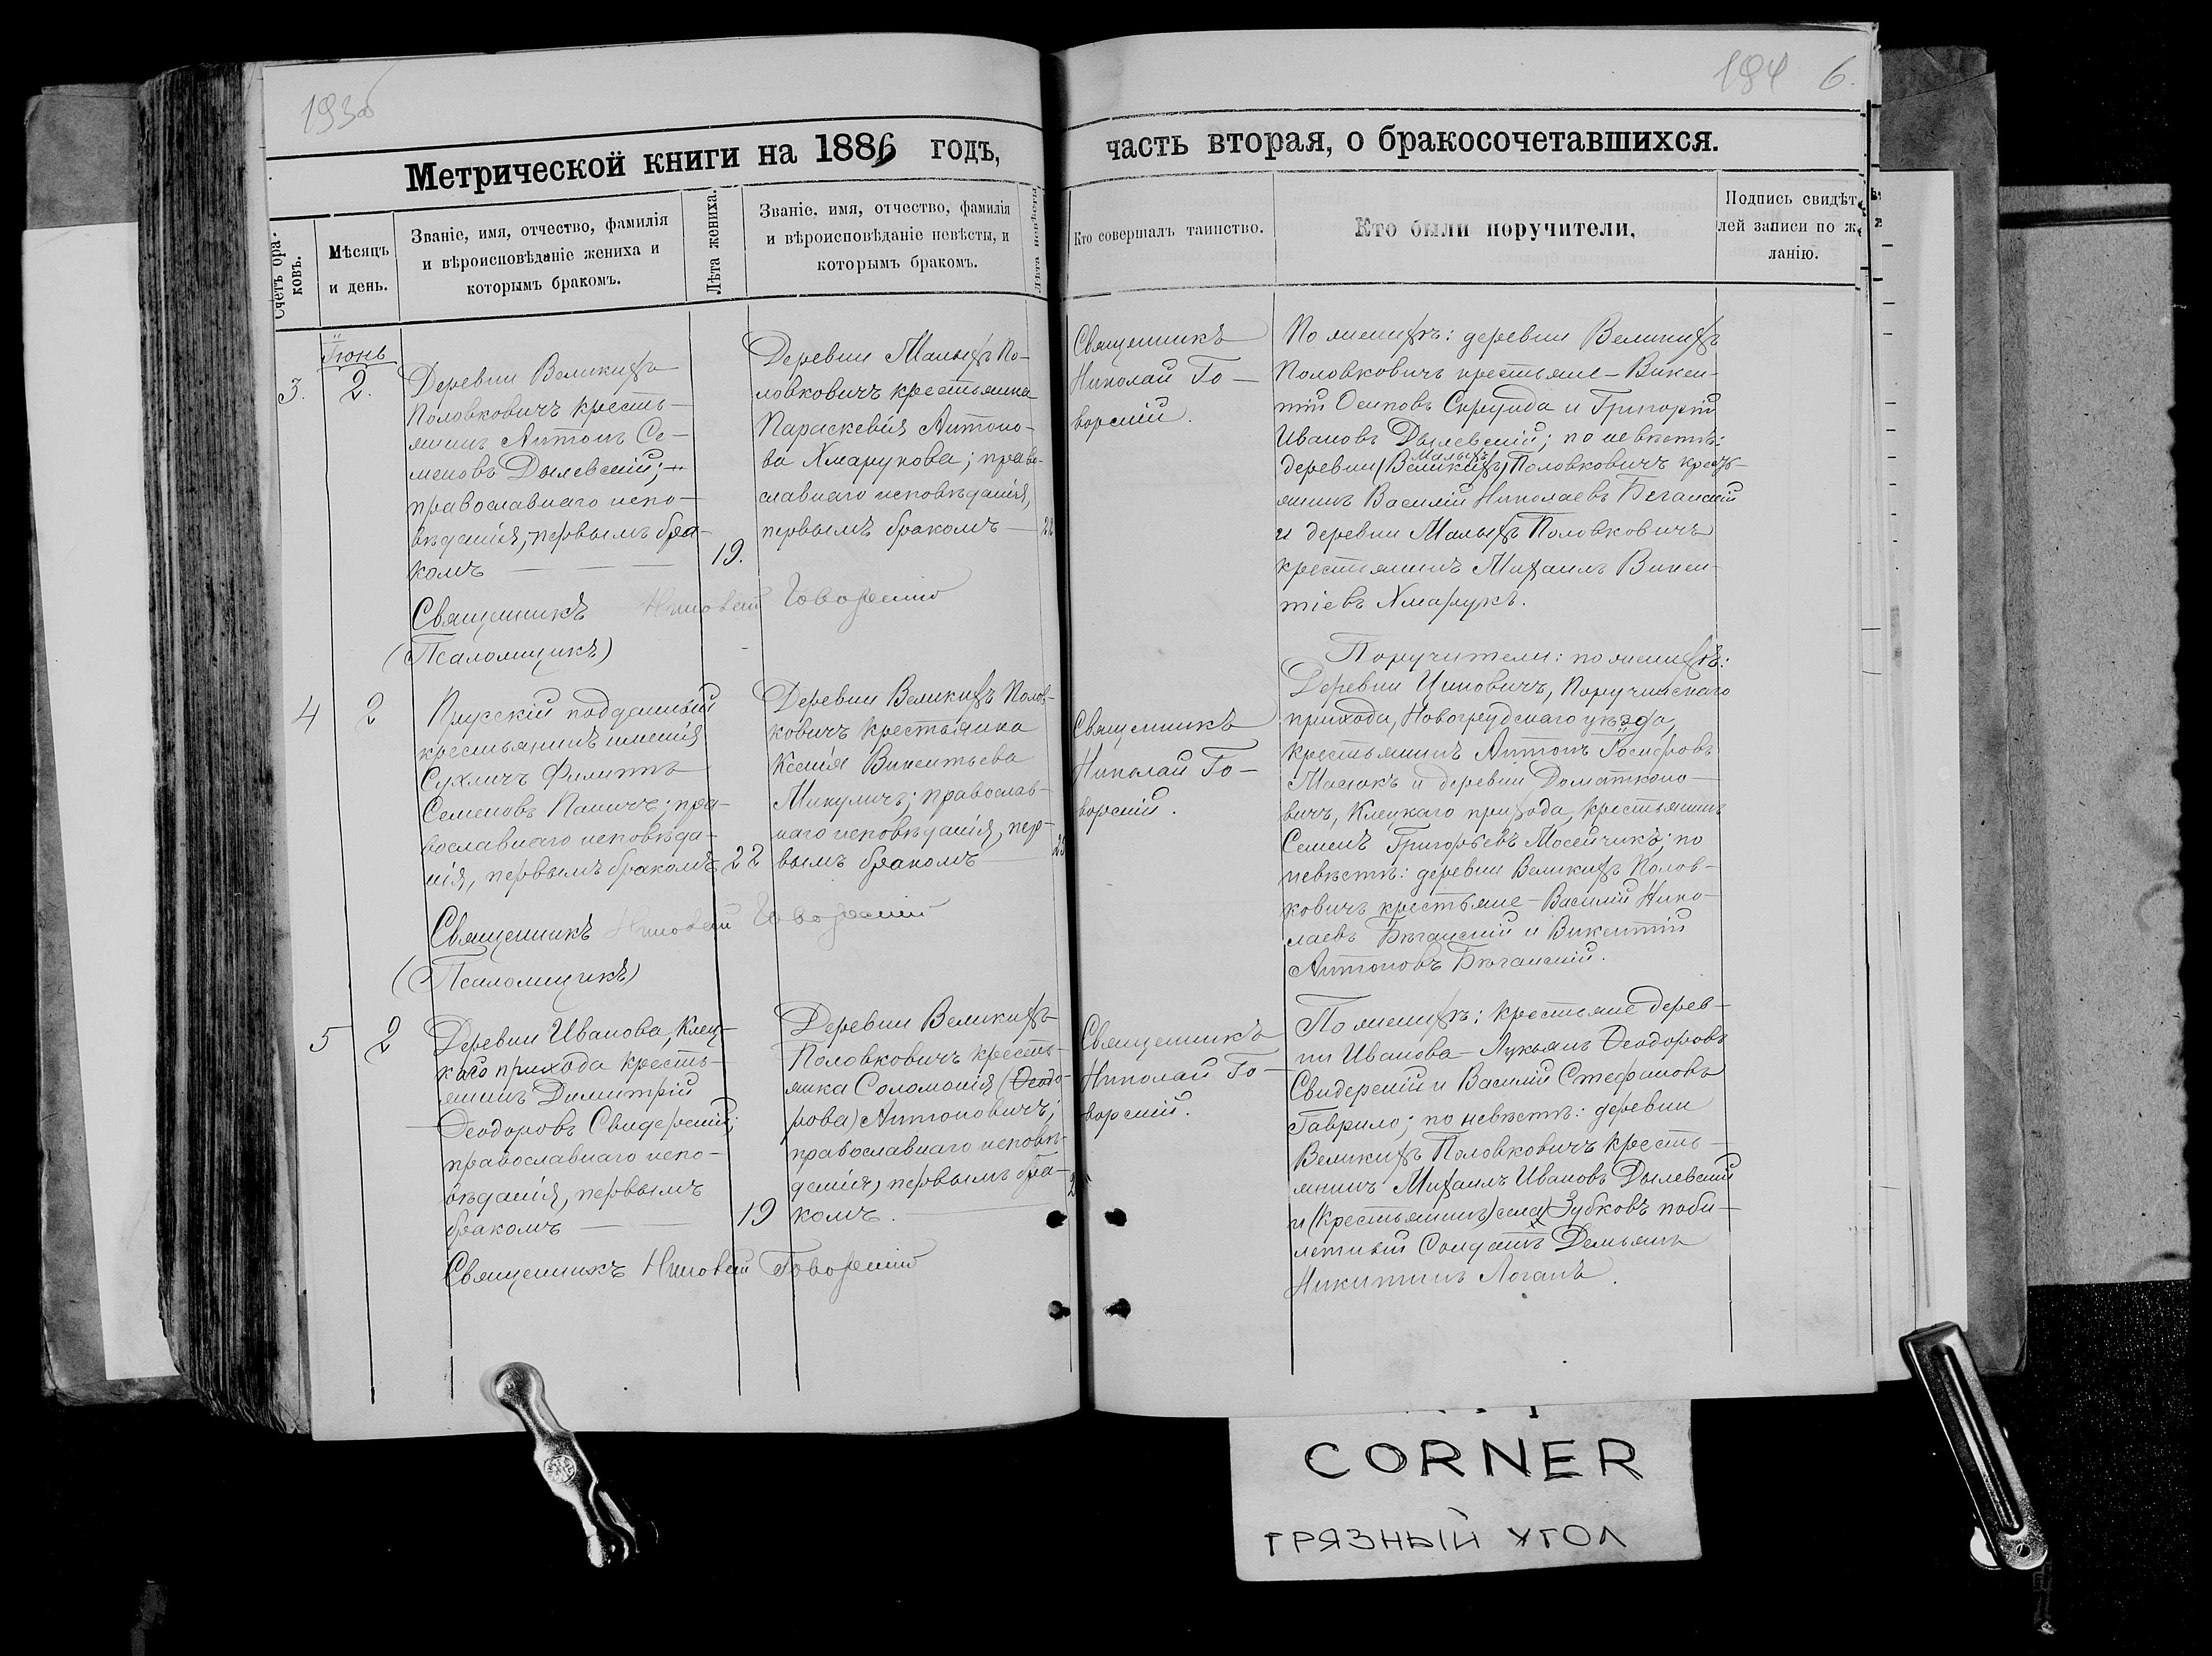 193об
194 6.
Метрической книги на 1886 годъ,
часть вторая, о бракосочетавшихся.
Счетъ браковъ.
Мѣсяцъ
и день.
Званіе, имя, отчество, фамилія
и вѣроисповѣданіе жениха и
которымъ бракомъ.
Лѣта жениха.
Званіе, имя, отчество, фамилія
и вѣроисповѣданіе невѣсты, и
которымъ бракомъ.
Лѣта невѣсты
Кто совершалъ таинство.
Кто были поручители.
Подпись свидѣте
лей записи по же
ланію.
3.
Іюнь
2.
Деревни Великихъ
Половковичъ кресть-
янинъ Антонъ Се-
меновъ Дылевскій;
православнаго испо-
вѣданія, первымъ бра-
комъ
19.
Деревни Малыхъ По-
ловковичъ крестьянка
Параскевія Антоно-
ва Хмарукова; право-
славнаго исповѣданія,
первымъ бракомъ
22
Священникъ
Николай Го-
ворскій.
По женихѣ: деревни Великихъ
Половковичъ крестьяне - Викен-
тій Осиповъ Скрунда и Григорій
Ивановъ Дылевскій; по невѣстѣ:
Малыхъ
деревни (Великихъ) Половковичъ кресть-
янинъ Василій Николаевъ Беганскій
и деревни Малыхъ Половковичъ
крестьянинъ Михаилъ Викен-
тіевъ Хмарукъ.
Священникъ Николай Говорскій
(Псаломщикъ)
4
2
Прусскій подданный
крестьянинъ имѣнія
Сухличъ Филиппъ
Семеновъ Паничъ; пра-
вославнаго исповѣда-
нія, первымъ бракомъ
22
Деревни Великихъ Полов-
ковичъ крестьянка
Ксенія Викентьева
Микуличъ; православ-
наго исповѣданія, пер-
вымъ бракомъ
Священникъ
Николай Го-
ворскій.
Поручители: по женихѣ:
Деревни Циновичъ,
прихода, Новогрудскаго уѣзда,
крестьянинъ Антонъ Іосифовъ
Масюкъ и деревни Доматкано-
вичъ, Клецкаго прихода, крестьянинъ
Семенъ Григорьевъ Мосейчикъ; по
невѣстѣ: деревни Великихъ Полов-
ковичъ крестьяне - Василій Нико-
лаевъ Бѣганскій и Викентій
Антоновъ Бѣганскій.
Священникъ Николай Говорскій
(Псаломщикъ)
5
2
Деревни Иванова, Клец-
каго прихода кресть-
янинъ Димитрій
Ѳеодоровъ Свидерскій;
православнаго испо-
вѣданія, первымъ
бракомъ
19
Деревни Великихъ
Половковичъ кресть-
янка Соломонія (Ѳеодо-
рова) Антоновичъ;
православнаго исповѣ-
данія, первымъ бра-
комъ.
Священникъ
Николай Го-
ворскій.
По женихѣ: крестьяне дерев-
ни Иванова - Лукьянъ Ѳеодоровъ
Свидерскій и Василій Стефановъ
Гаврило; по невѣстѣ: деревни
Великихъ Половковичъ кресть-
янинъ Михаилъ Ивановъ Дылевскій
и (крестьянинъ) села Зубковъ поби-
летный солдатъ Демьянъ
Никитинъ Логанъ.
Священникъ Николай Говорскій
CORNER
ГРЯЗНЫЙ УГОЛ